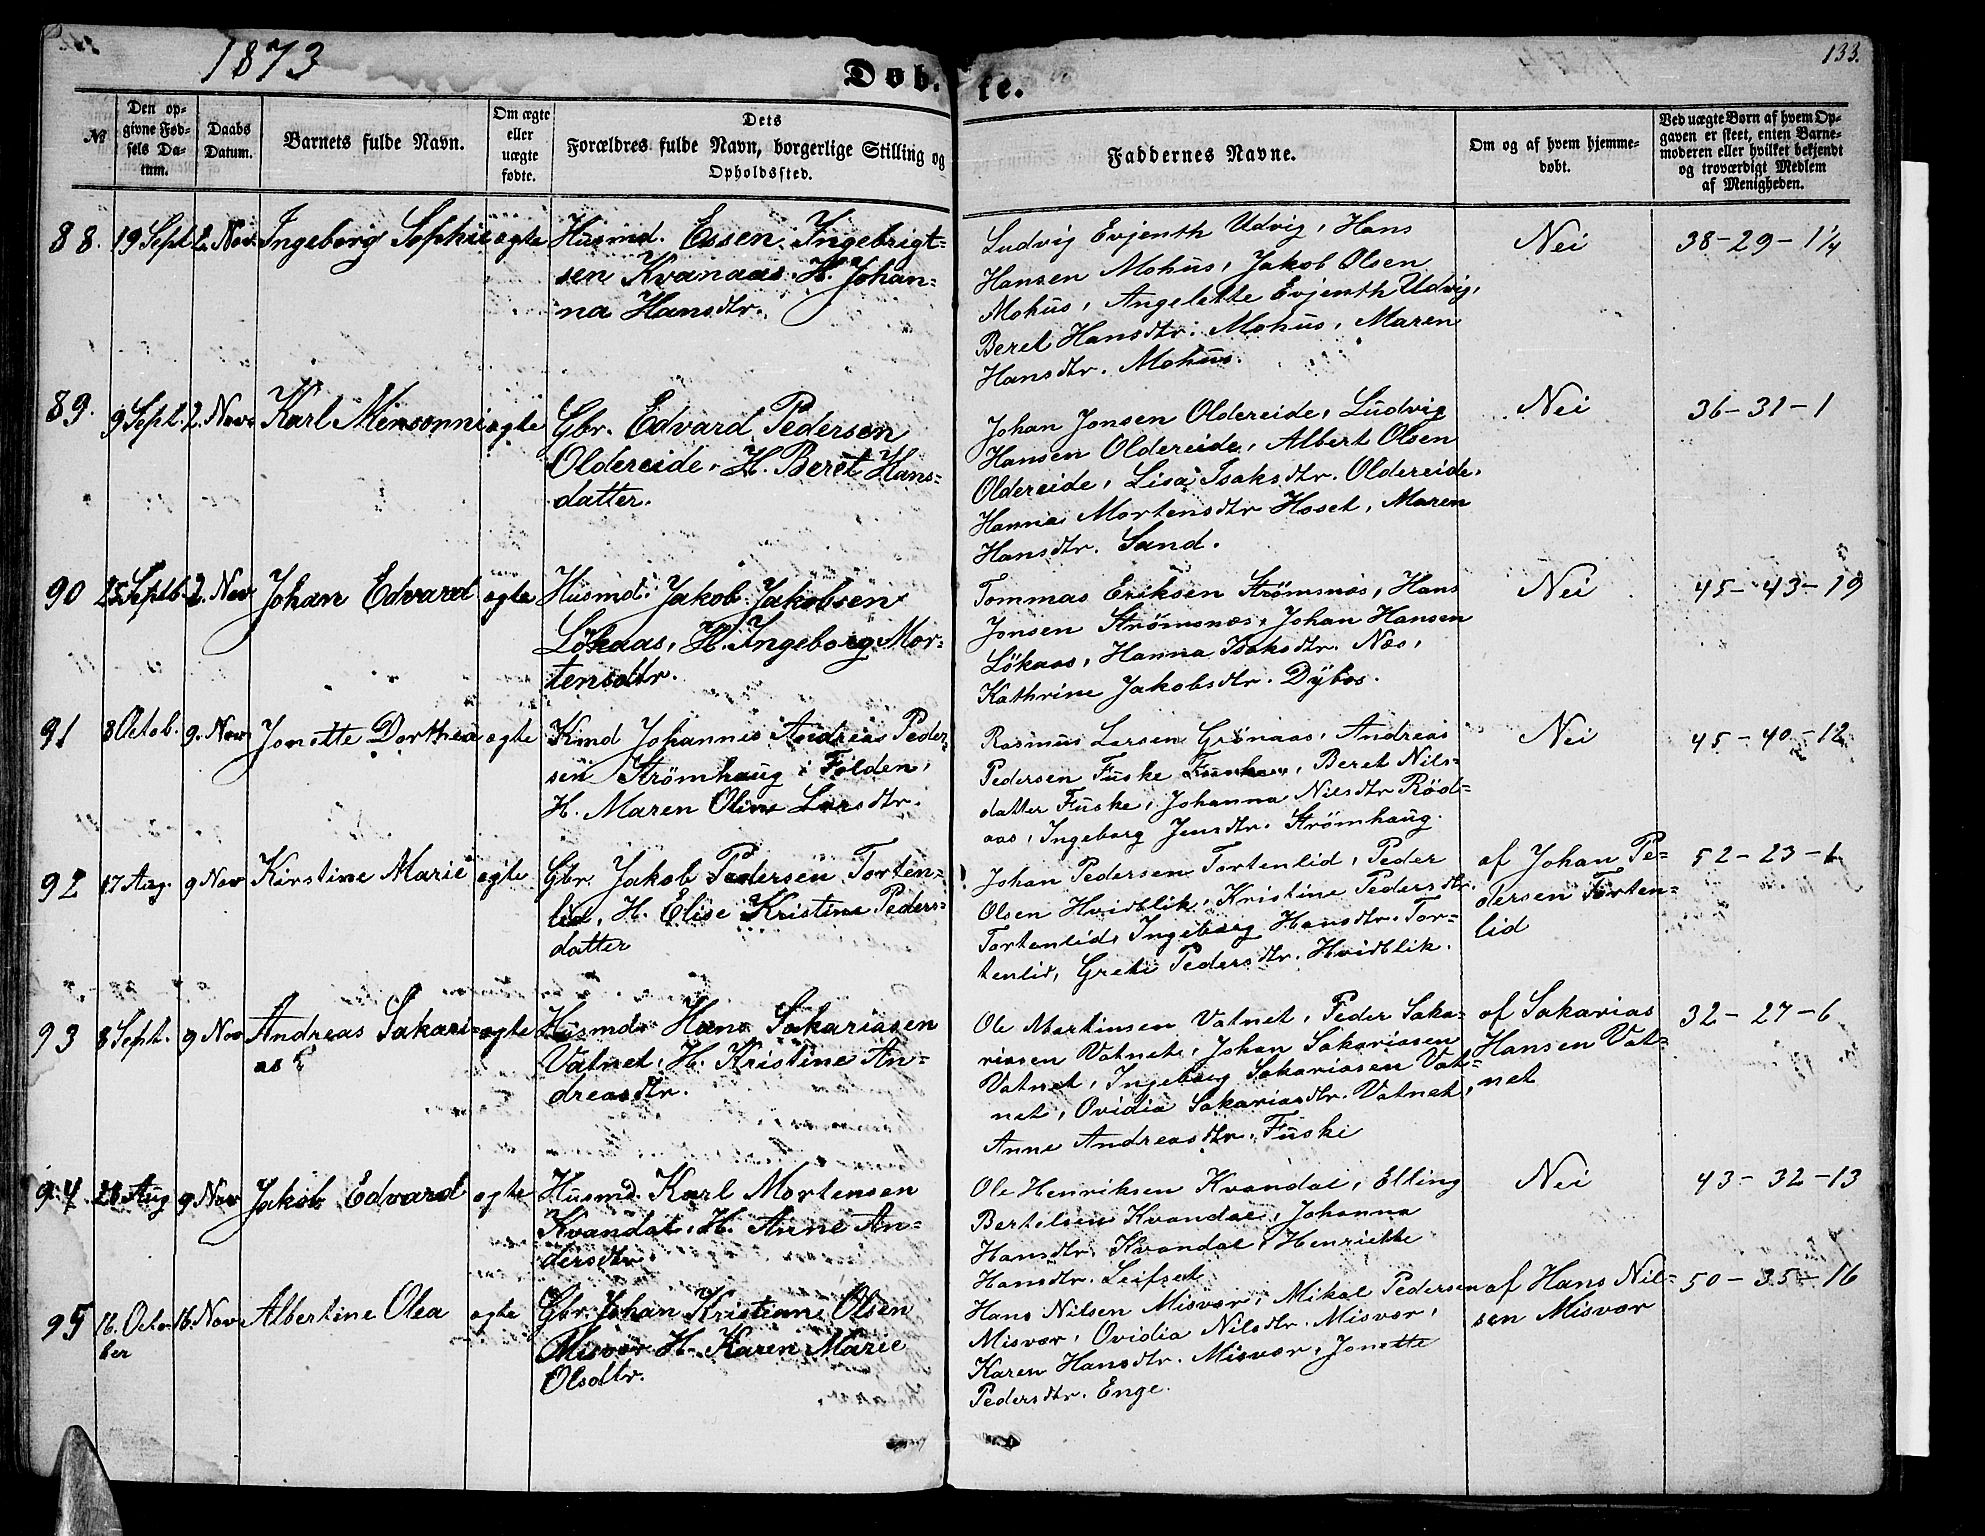 1873
133.
Døb-
te.
№
Den op-
givne Fød-
sels Da-
tum.
Daabs
Datum.
Barnets fulde Navn.
Om ægte
eller
uægte
fødte.
Dets
Forældres fulde Navn, borgerlige Stilling og
Opholdssted.
Faddernes Navne.
Om og af hvem hjemme-
døbt.
Ved uægte Børn af hvem Op-
gaven er skeet, enten Barne-
moderen eller hvilket bekjendt
og troværdigt Medlem
af Menigheden.
88. 19 Sept 2. Nov. Ingeborg Sophie ægte
Husmd. Essen Ingebrigt-
sen Kvanaas. H. Johan-
na Hansdtr.
Ludvig Evjenth Udvig, Hans
Hansen Mohus, Jakob Olsen
Mohus, Angelette Evjenth Udvig,
Beret Hansdtr. Mohus, Maren
Hansdtr. Mohus.
Nei
38-29-1 1/4
89. 9 Sept. 2. Nov. Karl Mensonni ægte
Gbr. Edvard Pedersen
Oldereide, H. Beret Hans-
datter.
Johan Jonsen Oldereide, Ludvig
Hansen Oldereide, Albert Olsen
Oldereide, Lisa Isaksdtr. Oldereide,
Hanna Mortensdtr Hoset, Maren
Hansdtr. Sand.
Nei
36-31-1
90 25 Septb. 2. Nov Johan Edvard ægte
Husmd. Jakob Jakobsen
Lökaas, H. Ingeborg Mor-
tensdtr.
Tommas Eriksen Strömsnæs, Hans
Jonsen Strömsnæs, Johan Hansen
Lökaas, Hanna Isaksdtr. Næs,
Kathrine Jakobsdtr. Dybos.
Nei
45-43-19
91 8 Octob. 9. Nov Jonette Dorthea ægte
Kmd Johannes Andreas Peder-
sen Strömhaug i Folden,
H. Maren Oline Larsdtr.
Rasmus Larsen Grönaas, Andreas
Pedersen Fuske, Beret Nils-
datter Fuske, Johanna Nilsdtr Röd-
aas, Ingeborg Jensdtr. Strömhaug.
Nei
45-40-12
92 17 Aug. 9 Nov Kirstine Marie ægte
Gbr. Jakob Pedersen Torten-
lid, H. Elise Kristine Peders-
datter
Johan Pedersen Tortenlid, Peder
Olsen Hvidblik, Kristine Pedersdtr.
Tortenlid, Ingeborg Hansdtr. Tor-
tenlid, Grete Pedersdtr. Hvidblik.
af Johan Pe-
dersen Torten-
lid
52-23-1
93 8 Sept. 9 Nov Andreas Sakari-
as ægte
Husmd. Hans Sakariasen
Vatnet, H. Kristine An-
dreasdtr.
Ole Martinsen Vatnet, Peder Saka-
riasen Vatnet, Johan Sakariasen
Vatnet, Ingeborg Sakariasen Vat-
net, Ovidia Sakariasdtr. Vatnet,
Anne Andreasdtr. Fuske
af Sakarias
Hansen Vat-
net
32-27-6
94 28 Aug 9 Nov Jakob Edvard ægte
Husmd. Karl Mortensen
Kvandal, H. Anne An-
dersdtr.
Ole Henriksen Kvandal, Elling
Bertelsen Kvandal, Johanna
Hansdtr. Kvandal, Henriette
Hansdtr. Leifset
Nei
43-32-13
95 16. Octo-
ber 16. Nov Albertine Olea ægte
Gbr. Johan Kristian Olsen
Misvær H. Karen Marie
Olsdtr.
Hans Nilsen Misvær, Mikal Pedersen
Misvær, Ovidia Nilsdtr. Misvær,
Karen Hansdtr. Misvær, Jonette
Pedersdtr. Enge.
af Hans Nil-
sen Misvær
50-35-16